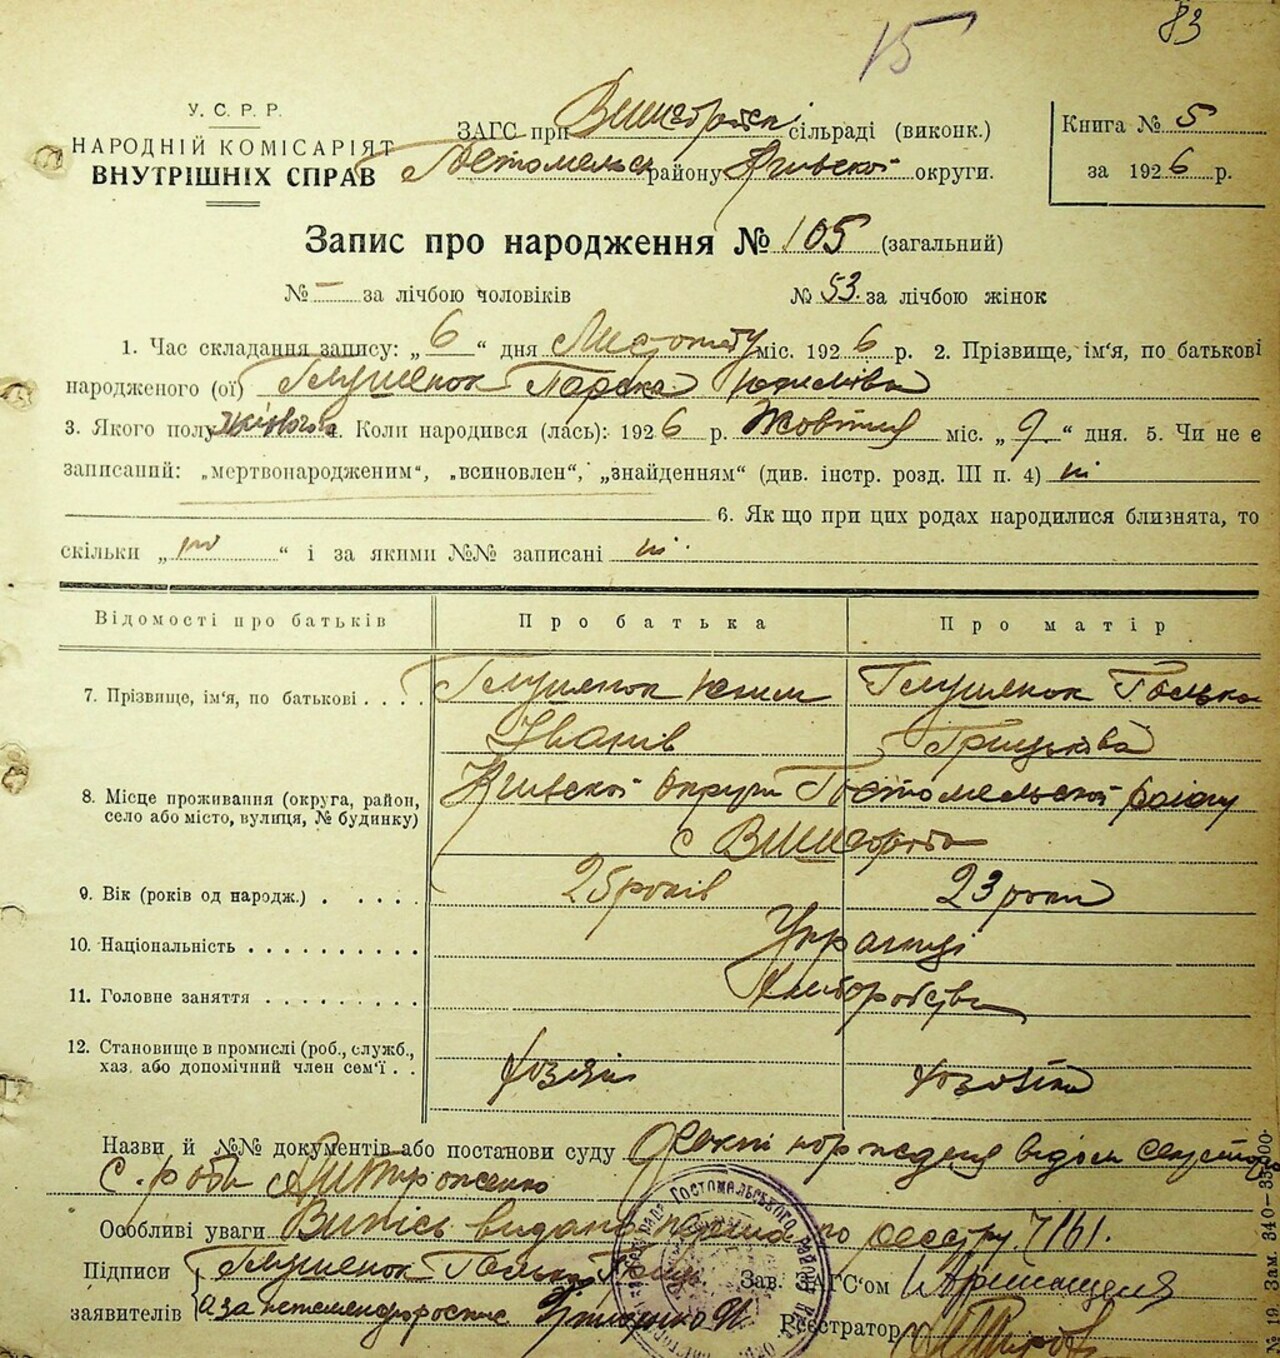 15 83
У. С. Р. Р.
НАРОДНІЙ КОМІСАРІЯТ
ВНУТРІШНІХ СПРАВ
ЗАГС при Вишгородск сільраді (виконк.)
Гостомельск району Київської округи.
Книга № 5
за 1926 р.
Запис про народження № 105 (загальний)
№ – за лічбою чоловіків № 53. за лічбою жінок
1. Час складання запису: „6“ дня Листопаду міс. 1926 р. 2. Прізвище, ім'я, по батькові
народженого (ої) Глушенок Параска Юхимівна
3. Якого полу жіночого 4. Коли народився (лась): 1926 р. Жовтня міс. „9“ дня. 5. Чи не є
записаний: „мертвонародженим“, „всиновлен“, „знайденням“ (див. інстр. розд. III п. 4) ні
6. Як що при цих родах народилися близнята, то
скільки „ні“ і за якими №№ записані ні.
Відомості про батьків Про батька Про матір
7. Прізвище, ім'я, по батькові . . . . Глушенок Юхим Глушенок Галька
Іванів Грицькова
8. Місце проживання (округа, район, село або місто, вулиця, № будинку) Київської округи Гостомельської району
с Вишгорода
9. Вік (років од народж.) . . . . . 25 років 23 роки
10. Національність . . . . . . . . . . Українці
11. Головне заняття . . . . . . . . . Хліборобство
12. Становище в промислі (роб., служб.,
хаз. або допомічний член сем'ї . . Хозяїн Хозяйка
Назви й №№ документів або постанови суду
С. ради
Особливі уваги Випись видана перша по реєстру 7/61.
Підписи Глушенок Галька Зав. ЗАГС'ом
заявителів а за неписьменого росписс Реєстратор
№ 19. Зам. 340—35000.